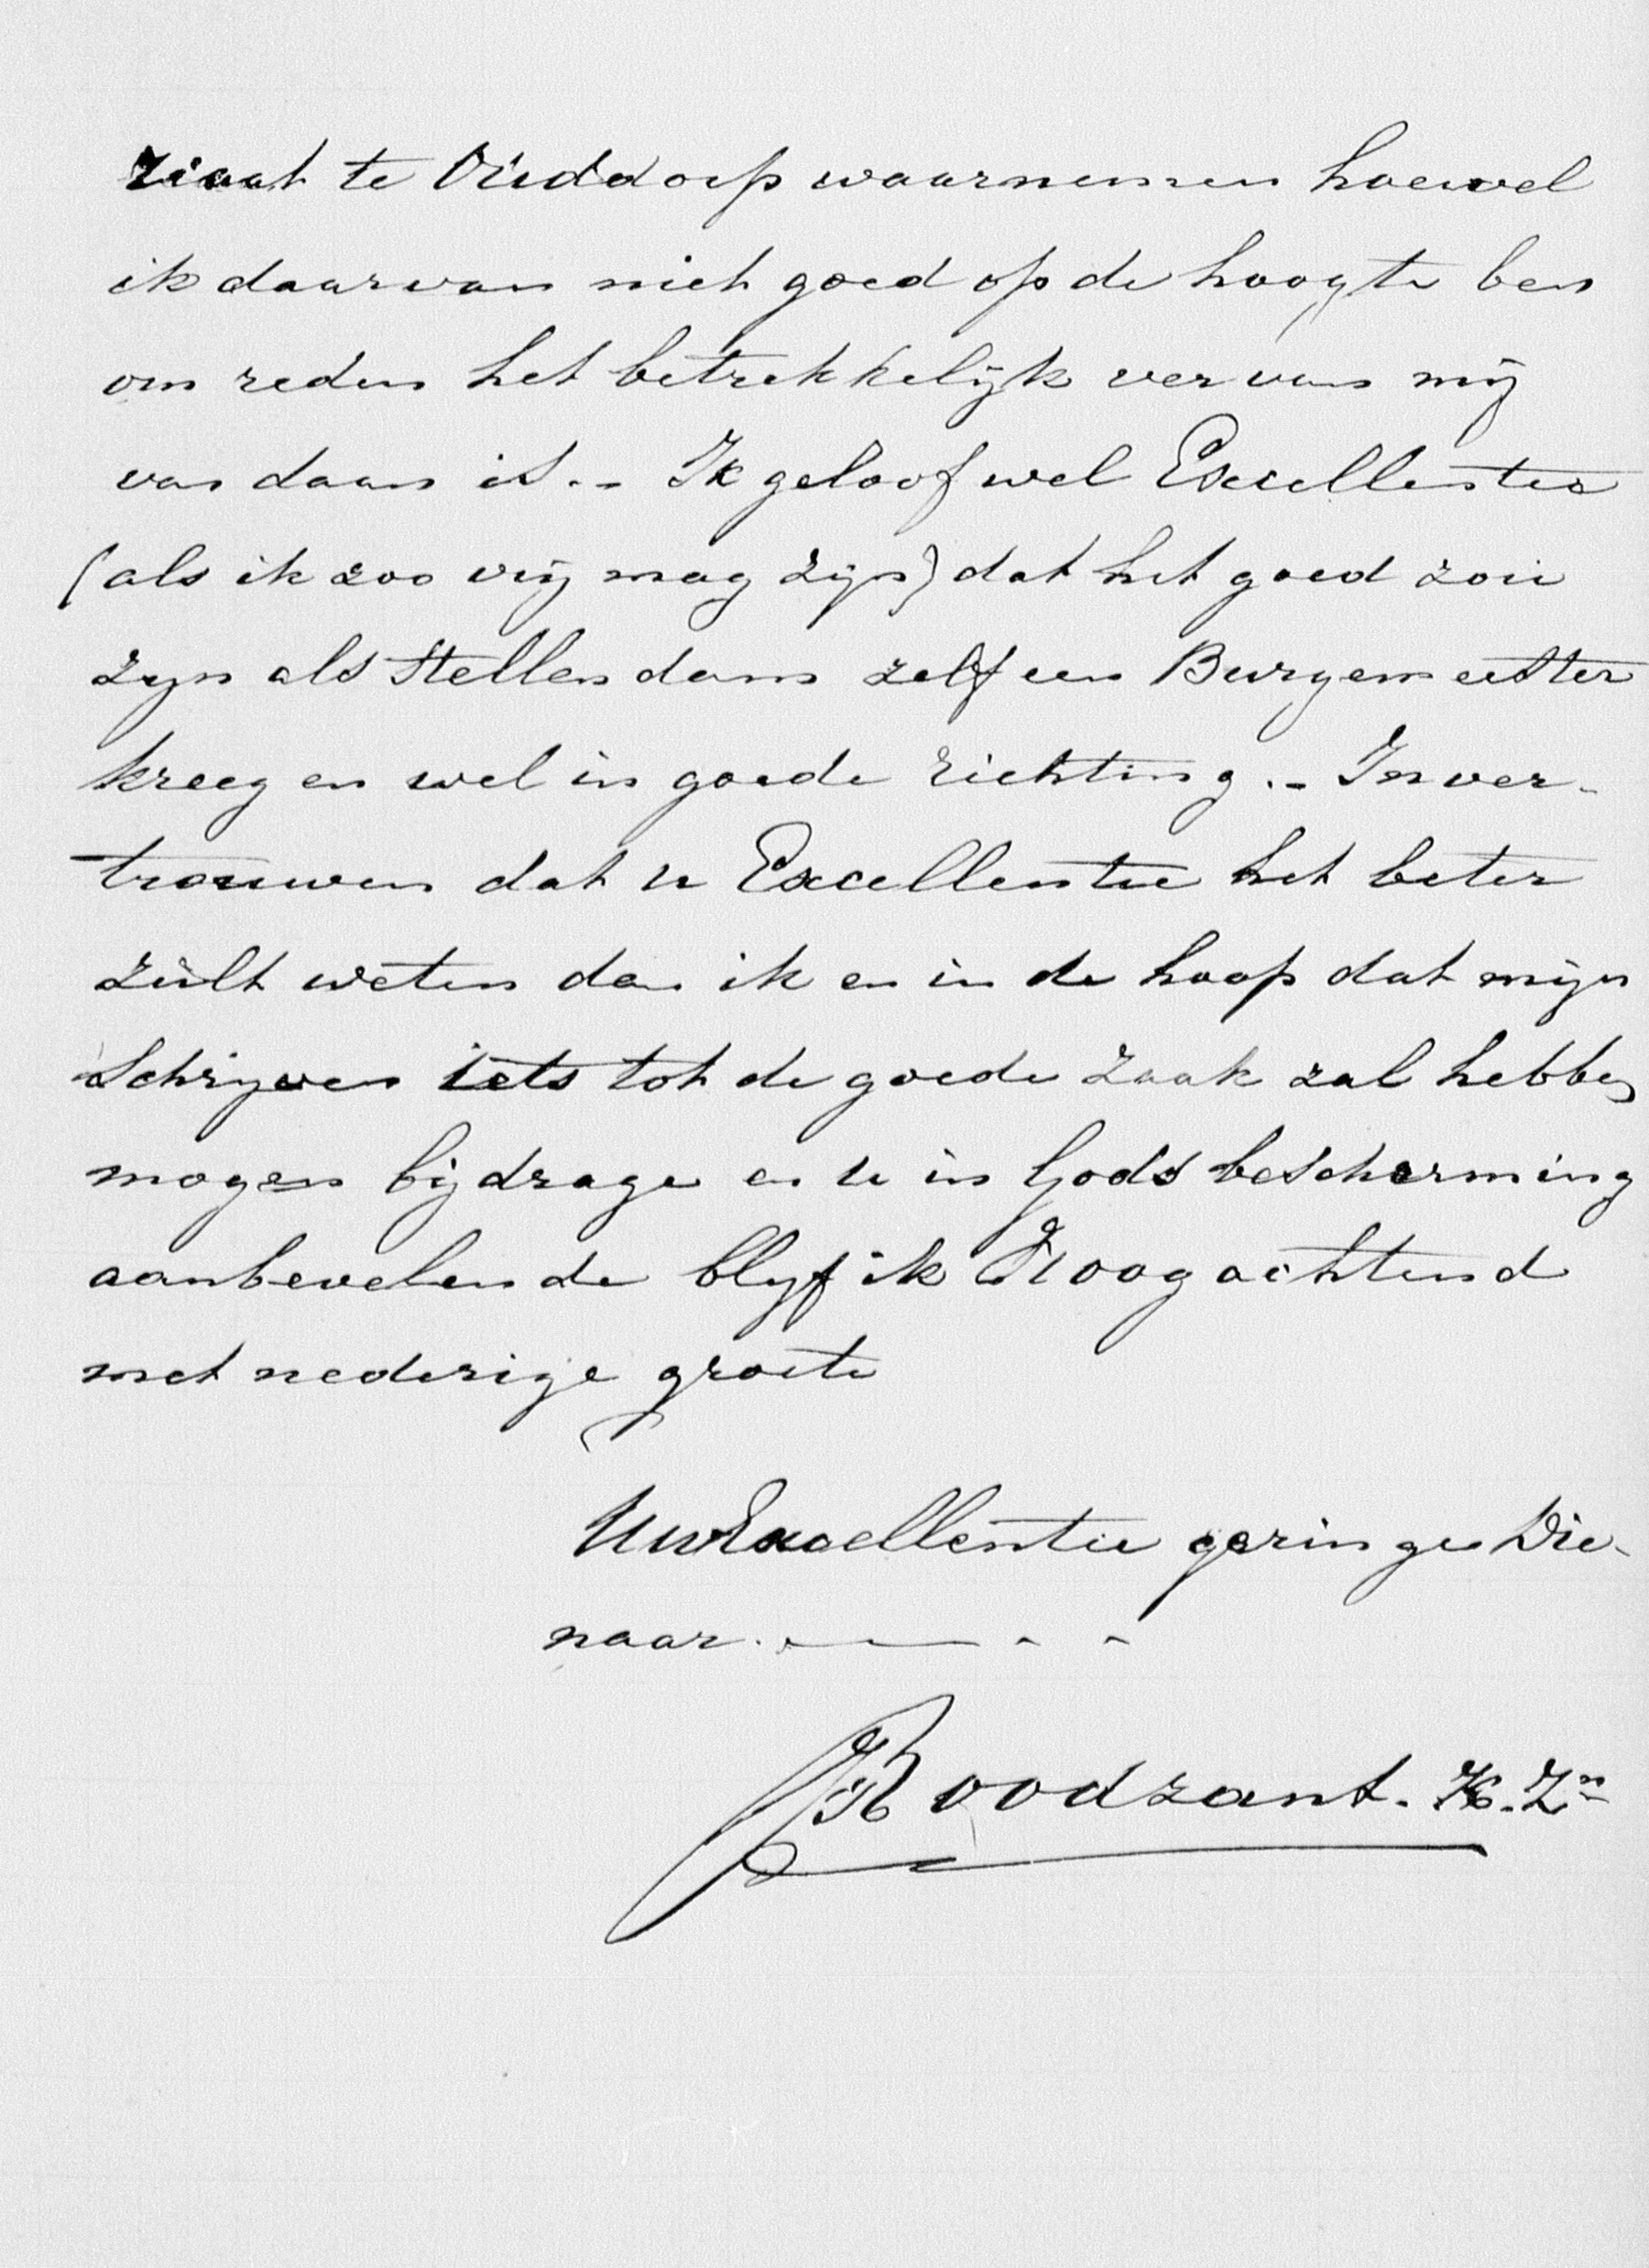 riaat te Ouddorp waarnemen hoewel
ik daarvan niet goed op de hoogte ben
om reden het betrekkelijk ver van mij
van daan is.- Ik geloof wel Excellentie
(als ik zoo vrij mag zijn) dat het goed zou
zyn als Stellendam zelf een Burgemeester
kreeg en wel in goede richting.- In ver-
trouwen dat u Excellentie het beter
zult weten dan ik en in de hoop dat mijn
Schrijven iets tot de goede zaak zal hebben
mogen bijdrage en u in Gods bescherming
aanbevelende blyf ik Hoogachtend
met nederige groete
Uw Excellentie geringe Die-
naar.
Roodzant. K.Zn